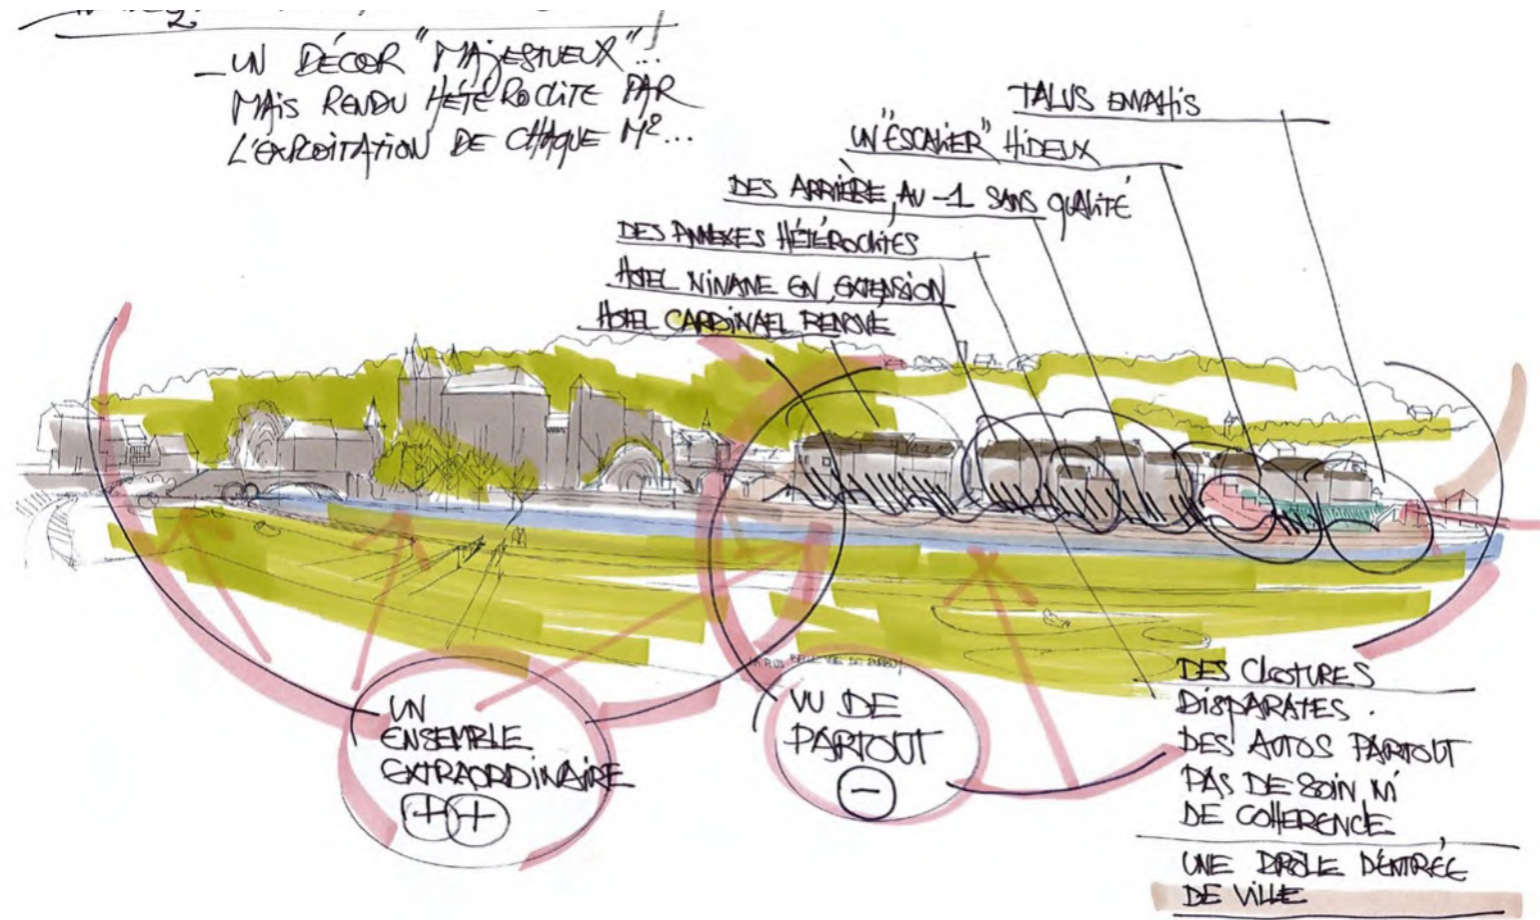 2
_ UN DÉCOR "MAJESTUEUX"!..
MAIS RENDU HÉTÉROCLITE PAR
L'EXPLOITATION DE CHAQUE M²...
TALUS ENVAHIS
UN "ESCALIER" HIDEUX
DES ARRIÈRE, AU -1 SANS QUALITÉ
DES ANNEXES HÉTÉROCLITES
HOTEL NINANE EN EXTENSION
HOTEL CARDINAEL RENOVÉ
LA PLUS BELLE VUE DE DURBUY
UN
ENSEMBLE
EXTRAORDINAIRE
++
VU DE
PARTOUT
-
DES CLOTURES
DISPARATES.
DES AUTOS PARTOUT
PAS DE SOIN NI
DE COHERENCE
UNE DRÔLE D'ENTRÉE
DE VILLE